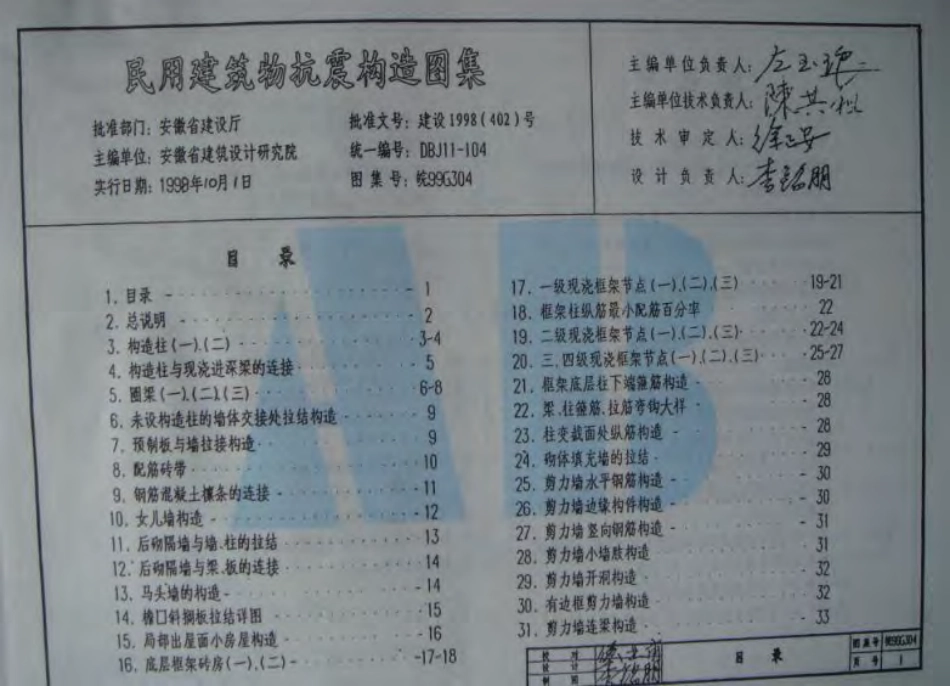 民用建筑物抗震构造图集
批准部门：安徽省建设厅
主编单位：安徽省建筑设计研究院
实行日期：1998年10月1日
批准文号：建设1998(402)号
统一编号：DBJ11-104
图集号：皖99G304
主编单位负责人：
主编单位技术负责人：
技术审定人：
设计负责人：李铭朋
目录
1. 目录 1
2. 总说明 2
3. 构造柱(一).(二) 3-4
4. 构造柱与现浇进深梁的连接 5
5. 圈梁(一).(二).(三) 6-8
6. 未设构造柱的墙体交接处拉结构造 9
7. 预制板与墙拉接构造 9
8. 配筋砖带 10
9. 钢筋混凝土檩条的连接 11
10. 女儿墙构造 12
11. 后砌隔墙与墙.柱的拉结 13
12. 后砌隔墙与梁.板的连接 14
13. 马头墙的构造 14
14. 檐口斜搁板拉结详图 15
15. 局部出屋面小房屋构造 16
16. 底层框架砖房(一).(二) 17-18
17. 一级现浇框架节点(一).(二).(三) 19-21
18. 框架柱纵筋最小配筋百分率 22
19. 二级现浇框架节点(一).(二).(三) 22-24
20. 三.四级现浇框架节点(一).(二).(三) 25-27
21. 框架底层柱下端箍筋构造 28
22. 梁.柱箍筋.拉筋弯钩大样 28
23. 柱变截面处纵筋构造 28
24. 砌体填充墙的拉结 29
25. 剪力墙水平钢筋构造 30
26. 剪力墙边缘构件构造 30
27. 剪力墙竖向钢筋构造 31
28. 剪力墙小墙肢构造 31
29. 剪力墙开洞构造 32
30. 有边框剪力墙构造 32
31. 剪力墙连梁构造 33
校对
设计 李铭朋
制图
目录
图集号 皖99G304
页号 1
AB